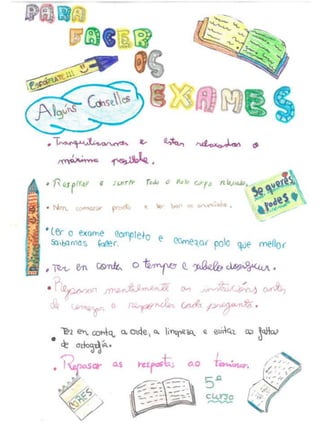 PARA
FACER
OS
EXAMES
Algúns Consellos
• Tranquilizarnos e estar relaxados o
máximo posible.
• Respirar e sentir todo o noso corpo relaxado.
• Non comezar pronto e ler ben o enunciado.
Se queres
podes
• Ler o exame completo e comezar polo que mellor
saibamos facer.
• Ter en conta o tempo e sabelo dosificar.
• Repasar mentalmente as instrucións antes
de comezar a responder cada pregunta.
• Ter en conta a orde, a limpeza e evitar as faltas
de ortografía.
• Repasar as respostas ao terminar.
5º
curso
CORES